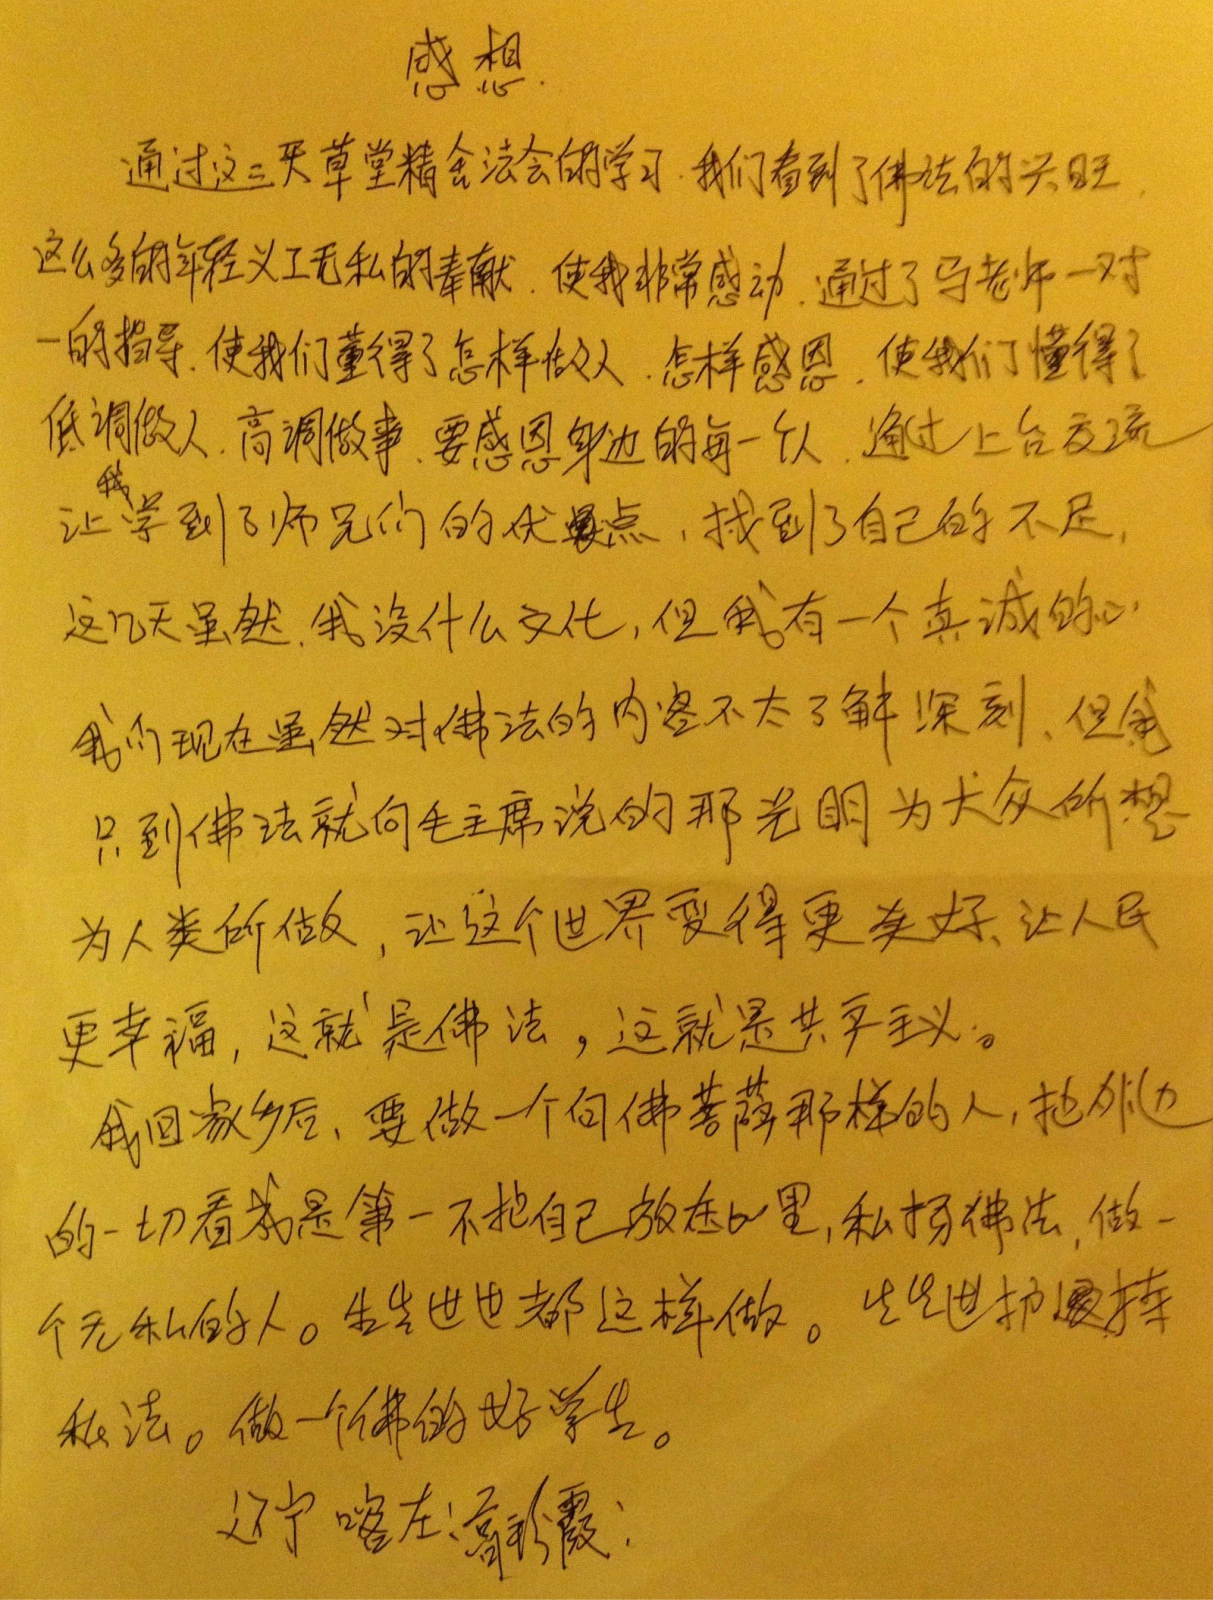 感想.
通过这三天草堂精舍法会的学习.我们看到了佛法的兴旺.
这么多的年轻义工无私的奉献.使我非常感动.通过了马老师一对
一的指导.使我们懂得了怎样做人.怎样感恩.使我们懂得了
低调做人.高调做事.要感恩身边的每一个人.通过上台交流
让我学到了师兄们的优点,找到了自己的不足,
这几天虽然.我没什么文化,但我有一个真诚的心.
我们现在虽然对佛法的内容不太了解深刻、但我
只到佛法就向毛主席说的那光明为大众所想
为人类所做,让这个世界变得更美好、让人民
更幸福,这就是佛法,这就是共产主义。
我回家乡后、要做一个向佛菩萨那样的人,把外边
的一切看我是第一不把自己放在心里,私扬佛法,做一
个无私的人。生生世世都这样做。生生世护持
私法。做一个佛的好学生。
辽宁喀左:高珍霞: